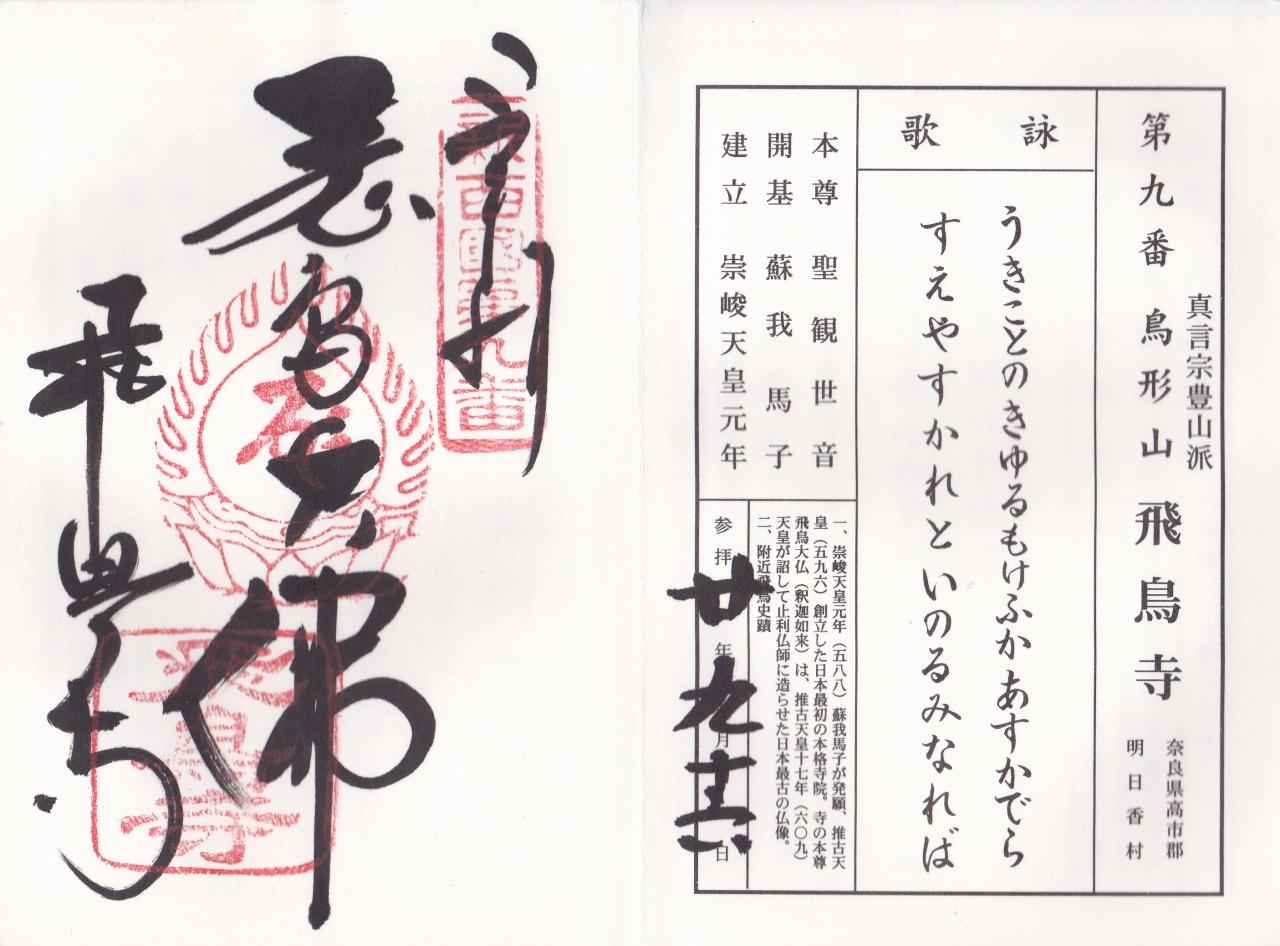 真言宗豊山派
第九番 鳥形山 飛鳥寺
奈良県高市郡
明日香村
詠歌
うきことのきゆるもけふかあすかでら
すえやすかれといのるみなれば
本尊 聖観世音
開基 蘇我馬子
建立 崇峻天皇元年
一、崇峻天皇元年（五八八）蘇我馬子が発願、推古天
皇（五九六）創立した日本最初の本格寺院。寺の本尊
飛鳥大仏（釈迦如来）は、推古天皇十七年（六〇九）
天皇が詔して止利仏師に造らせた日本最古の仏像。
二、附近飛鳥史蹟
参拝 廿 年 九 月 日
奉拝
新西國第九番
飛鳥大佛
飛鳥寺
飛鳥寺